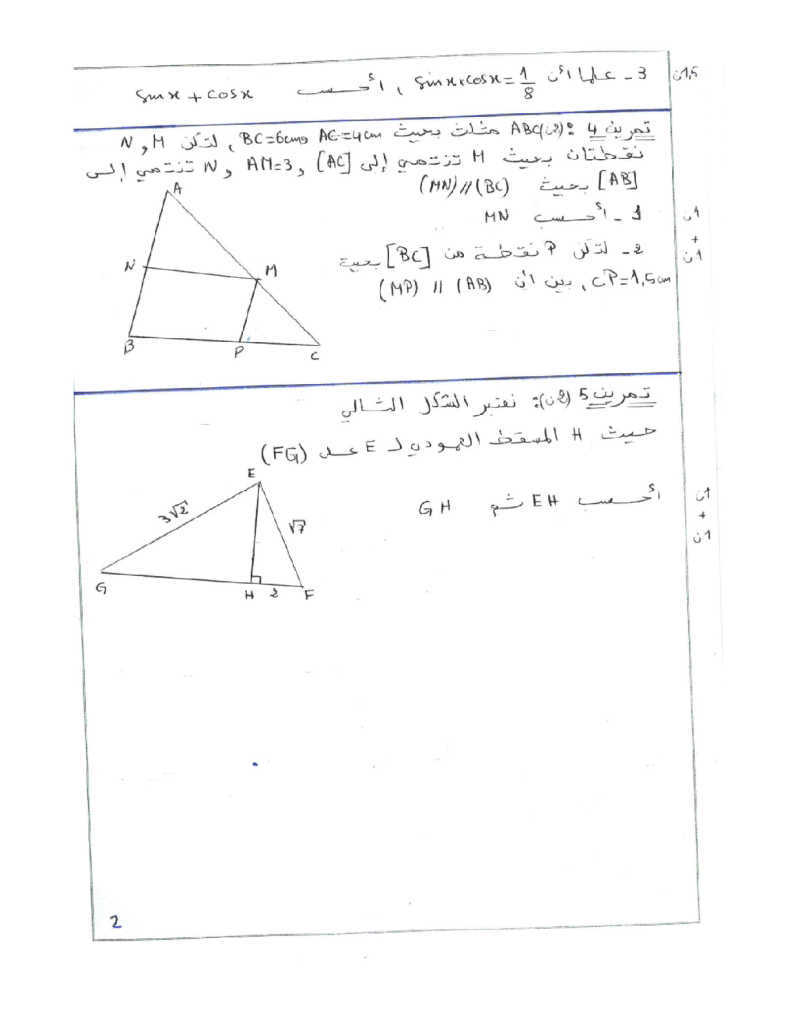 3 - علما أن sinx×cosx = 1/8 ، أحسب sinx + cosx
1,5ن
تمرين 4 (2ن): ABC مثلث بحيث AC=4cm و BC=6cm ، لتكن M و N
نقطتان بحيث M تنتمي إلى [AC] و AM=3 ، و N تنتمي إلى
[AB] بحيث (MN)//(BC)
1 - أحسب MN
1ن
+
2 - لتكن P نقطة من [BC] بحيث
1ن
CP=1,5cm ، بين أن (MP) // (AB)
A
N
M
B
P
C
تمرين 5 (2ن): نعتبر الشكل التالي
حيث H المسقط العمودي لـ E على (FG)
أحسب EH ثم GH
1ن
+
1ن
E
3√2
√7
G
H
2
F
2